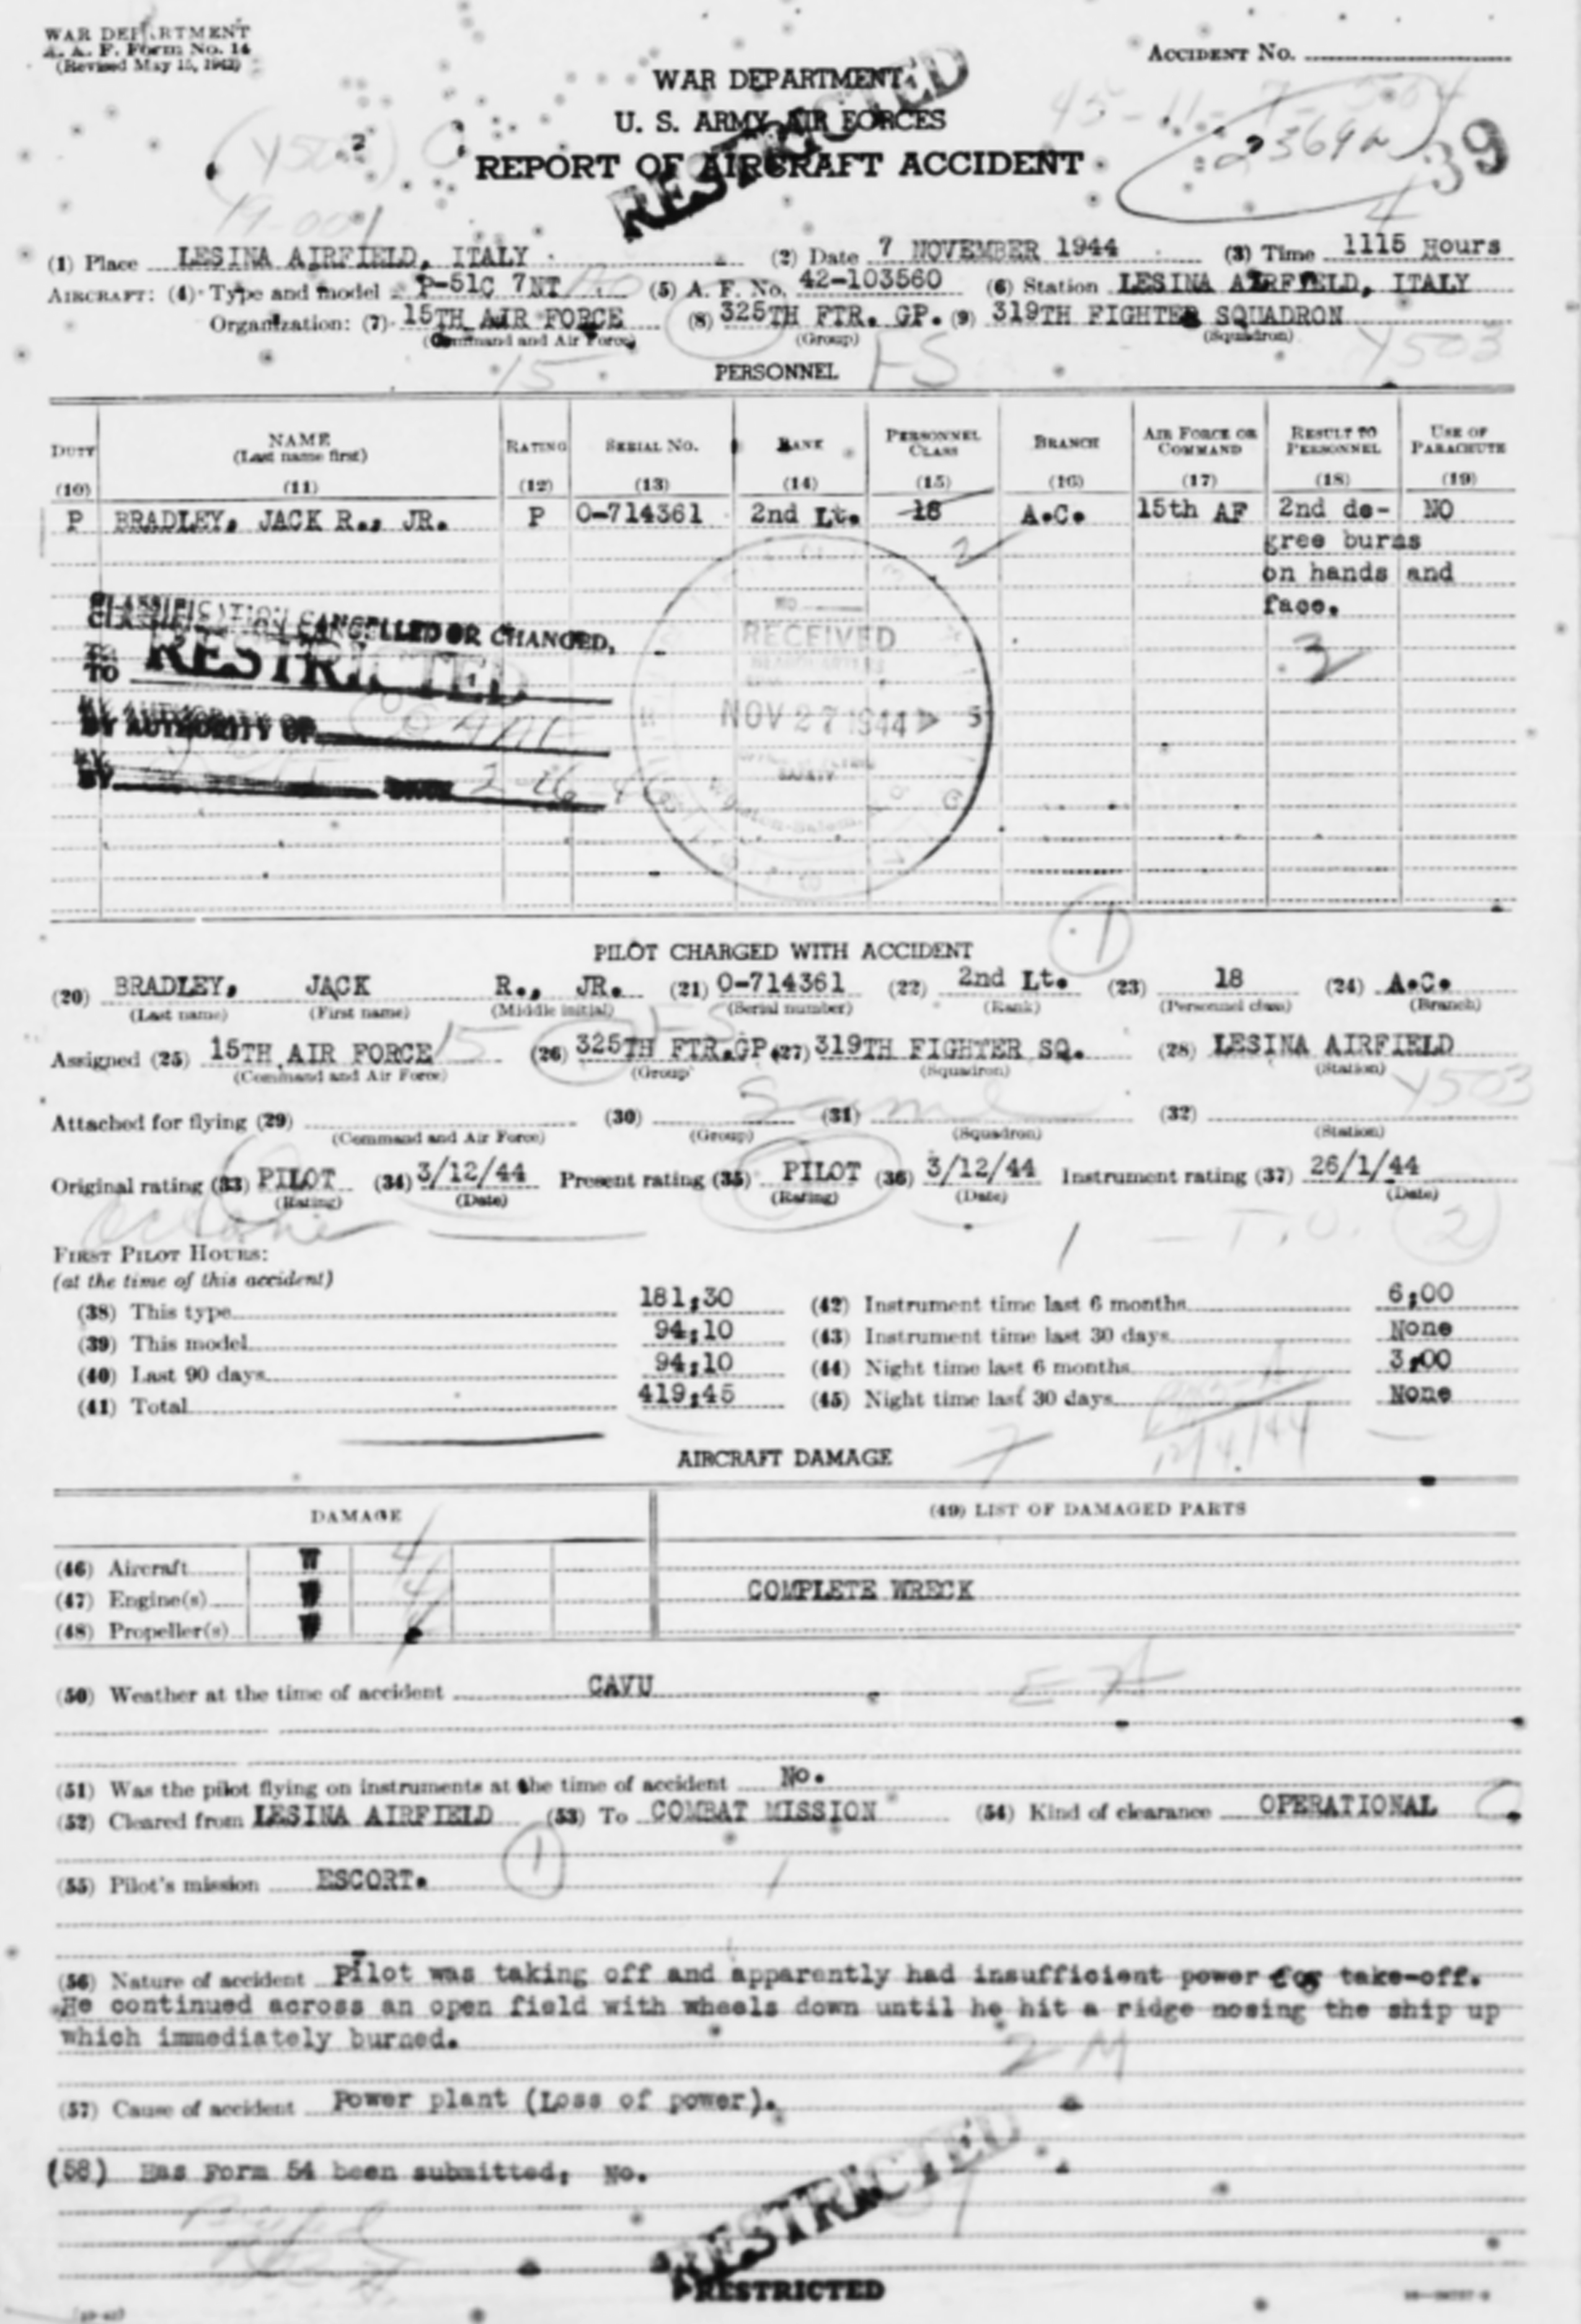 WAR DEPARTMENT
A. A. F. Form No. 14
(Revised May 15, 1942)
ACCIDENT No.
WAR DEPARTMENT
U. S. ARMY AIR FORCES
REPORT OF AIRCRAFT ACCIDENT
RESTRICTED
39
(1) Place LESINA AIRFIELD, ITALY (2) Date 7 NOVEMBER 1944 (3) Time 1115 Hours
AIRCRAFT: (4) Type and model P-51C 7NT (5) A. F. No. 42-103560 (6) Station LESINA AIRFIELD, ITALY
Organization: (7) 15TH AIR FORCE (8) 325TH FTR. GP. (9) 319TH FIGHTER SQUADRON
(Command and Air Force) (Group) (Squadron)
15 FS Y503
PERSONNEL
DUTY NAME (Last name first) RATING SERIAL No. RANK PERSONNEL CLASS BRANCH AIR FORCE OR COMMAND RESULT TO PERSONNEL USE OF PARACHUTE
(10) (11) (12) (13) (14) (15) (16) (17) (18) (19)
P BRADLEY, JACK R., JR. P O-714361 2nd Lt. 18 A.C. 15th AF 2nd de- NO
gree burns
on hands and
face.
2
3
CLASSIFICATION CANCELLED OR CHANGED,
TO RESTRICTED
BY AUTHORITY OF
BY DATE 2-26-46
RECEIVED
HEADQUARTERS
NOV 27 1944
PILOT CHARGED WITH ACCIDENT
1
(20) BRADLEY, JACK R., JR. (21) O-714361 (22) 2nd Lt. (23) 18 (24) A.C.
(Last name) (First name) (Middle initial) (Serial number) (Rank) (Personnel class) (Branch)
Assigned (25) 15TH AIR FORCE 15 (26) 325TH FTR.GP. (27) 319TH FIGHTER SQ. (28) LESINA AIRFIELD
(Command and Air Force) (Group) (Squadron) (Station)
Same Y503
Attached for flying (29) (30) (31) (32)
(Command and Air Force) (Group) (Squadron) (Station)
Original rating (33) PILOT (34) 3/12/44 Present rating (35) PILOT (36) 3/12/44 Instrument rating (37) 26/1/44
(Rating) (Date) (Rating) (Date) (Date)
2
FIRST PILOT HOURS:
(at the time of this accident)
(38) This type 181:30 (42) Instrument time last 6 months 6:00
(39) This model 94:10 (43) Instrument time last 30 days None
(40) Last 90 days 94:10 (44) Night time last 6 months 3:00
(41) Total 419:45 (45) Night time last 30 days None
12/4/44
AIRCRAFT DAMAGE
7
DAMAGE (49) LIST OF DAMAGED PARTS
(46) Aircraft W
(47) Engine(s) W COMPLETE WRECK
(48) Propeller(s) W
(50) Weather at the time of accident CAVU
(51) Was the pilot flying on instruments at the time of accident No.
(52) Cleared from LESINA AIRFIELD (53) To COMBAT MISSION (54) Kind of clearance OPERATIONAL
1
(55) Pilot's mission ESCORT.
(56) Nature of accident Pilot was taking off and apparently had insufficient power for take-off.
He continued across an open field with wheels down until he hit a ridge nosing the ship up
which immediately burned.
2 M
(57) Cause of accident Power plant (Loss of power).
(58) Has Form 54 been submitted: No.
RESTRICTED
RESTRICTED